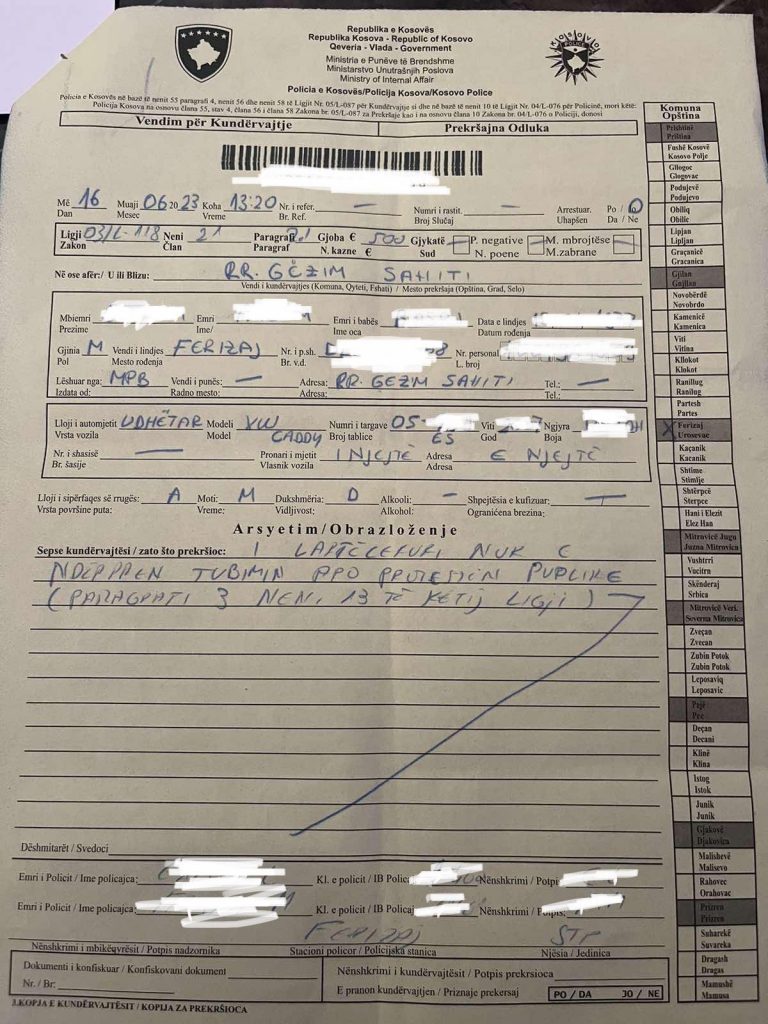 Republika e Kosovës
Republika Kosova - Republic of Kosovo
Qeveria - Vlada - Government
Ministria e Punëve të Brendshme
Ministarstvo Unutrašnjih Poslova
Ministry of Internal Affair
Policia e Kosovës/Policija Kosova/Kosovo Police
KOSOVO
POLICE
Policia e Kosovës në bazë të nenit 55 paragrafi 4, nenit 56 dhe nenit 58 të Ligjit Nr. 05/L-087 për Kundërvajtje si dhe në bazë të nenit 10 të Ligjit Nr. 04/L-076 për Policinë, mori këte:
Policija Kosova na osnovu člana 55, stav 4, člana 56 i člana 58 Zakona br. 05/L-087 za Prekršaje kao i na osnovu člana 10 Zakona br. 04/L-076 o Policiji, donosi
Vendim për Kundërvajtje Prekršajna Odluka
Më 16 Muaji 06 20 23 Koha 13:20 Nr. i refer. — Numri i rastit. — Arrestuar. Po / O
Dan Mesec Vreme Br. Ref. Broj Slučaj Uhapšen Da / Ne
Ligji 03/L-118 Neni 21 Paragrafi Gjoba € 500 Gjykatë P. negative M. mbrojtëse
Zakon Član Paragraf N. kazne € Sud N. poene M.zabrane
Në ose afër:/ U ili Blizu: RR. GËZIM SAHITI
Vendi i kundërvajtjes (Komuna, Qyteti, Fshati) / Mesto prekršaja (Opština, Grad, Selo)
Mbiemri Emri Emri i babës Data e lindjes
Prezime Ime/ Ime oca Datum rođenja
Gjinia M Vendi i lindjes FERIZAJ Nr. i p.sh. Nr. personal
Pol Mesto rođenja Br. v.d. L. broj
Lëshuar nga: MPB Vendi i punës: — Adresa: RR. GEZIM SAHITI Tel.: —
Izdata od: Radno mesto: Adresa: Tel.:
Lloji i automjetit UDHËTAR Modeli VW Numri i targave 05- Viti Ngjyra
Vrsta vozila Model CADDY Broj tablice ES God Boja
Nr. i shasisë — Pronari i mjetit I NJEJTË Adresa E NJEJTË
Br. šasije Vlasnik vozila Adresa
Lloji i sipërfaqes së rrugës: A Moti: M Dukshmëria: D Alkooli: — Shpejtësia e kufizuar: —
Vrsta površine puta: Vreme: Vidljivost: Alkohol: Ograničena brezina:
Arsyetim/Obrazloženje
Sepse kundërvajtësi / zato što prekršioc: I LARTËCEKURI NUK E
NDËRPREN TUBIMIN APO PROTESTËN PUBLIKE
(PARAGRAFI 3 NENI 13 TË KËTIJ LIGJI)
Dëshmitarët / Svedoci
Emri i Policit / Ime policajca: Kl. e policit / IB Polica Nënshkrimi / Potpi
Emri i Policit / Ime policajca: Kl. e policit / IB Policaj Nënshkrimi / Potpis:
FERIZAJ STP
Nënshkrimi i mbikëqyrësit / Potpis nadzornika Stacioni policor / Policijska stanica Njësia / Jedinica
Dokumenti i konfiskuar / Konfiskovani dokument Nënshkrimi i kundërvajtësit / Potpis prekrsioca
Nr. / Br: E pranon kundërvajtjen / Priznaje prekersaj PO / DA JO / NE
3.KOPJA E KUNDËRVAJTËSIT / KOPIJA ZA PREKRŠIOCA
Komuna
Opština
Prishtinë
Priština
Fushë Kosovë
Kosovo Polje
Gllogoc
Glogovac
Podujevë
Podujevo
Obiliq
Obilic
Lipjan
Lipljan
Graçanicë
Gracanica
Gjilan
Gnjilan
Novobërdë
Novobrdo
Kamenicë
Kamenica
Viti
Vitina
Kllokot
Klokot
Ranillug
Ranilug
Partesh
Partes
X Ferizaj
Urosevac
Kaçanik
Kacanik
Shtime
Stimlje
Shtërpcë
Sterpce
Hani i Elezit
Elez Han
Mitrovicë Jugu
Juzna Mitrovica
Vushtrri
Vucitrn
Skënderaj
Srbica
Mitrovicë Veri.
Severna Mitrovica
Zveçan
Zvecan
Zubin Potok
Zubin Potok
Leposaviq
Leposavic
Pejë
Pec
Deçan
Decani
Klinë
Klina
Istog
Istok
Junik
Junik
Gjakovë
Djakovica
Malishevë
Malisevo
Rahovec
Orahovac
Prizren
Prizren
Suharekë
Suvareka
Dragash
Dragas
Mamushë
Mamusa